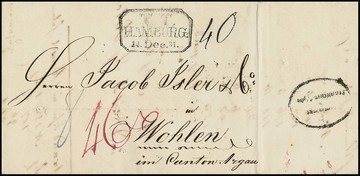 T.T.
HAMBURG.
12. Dec. 31.
40
Herren Jacob Isler & Co
in
46
Wohlen
im Canton Argau